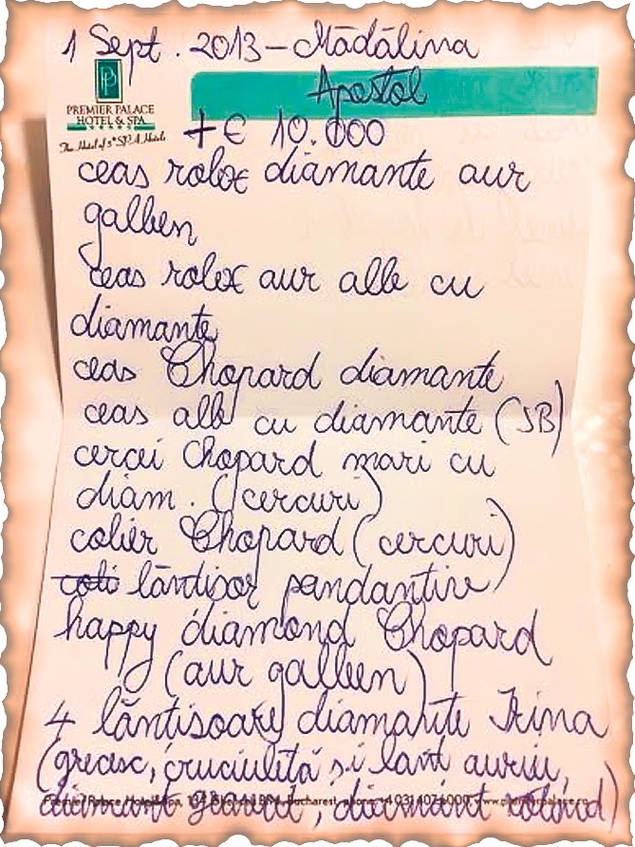 1 Sept. 2013 – Mădălina
Apostol
PREMIER PALACE
HOTEL & SPA
The Hotel of 5* SPA Hotels
+ € 10.000
ceas rolex diamante aur
galben
ceas rolex aur alb cu
diamante
ceas Chopard diamante
ceas alb cu diamante (JB)
cercei Chopard mari cu
diam. (cercuri)
colier Chopard (cercuri)
coli lănțișor pandantive
happy diamond Chopard
(aur galben)
4 lăntisoare diamante Irina
(grecesc, cruciuletă și lant auriu,
diamant , diamant rotund)
Premier Palace Hotel & Spa, Bucharest, phone: www.premierpalace.ro